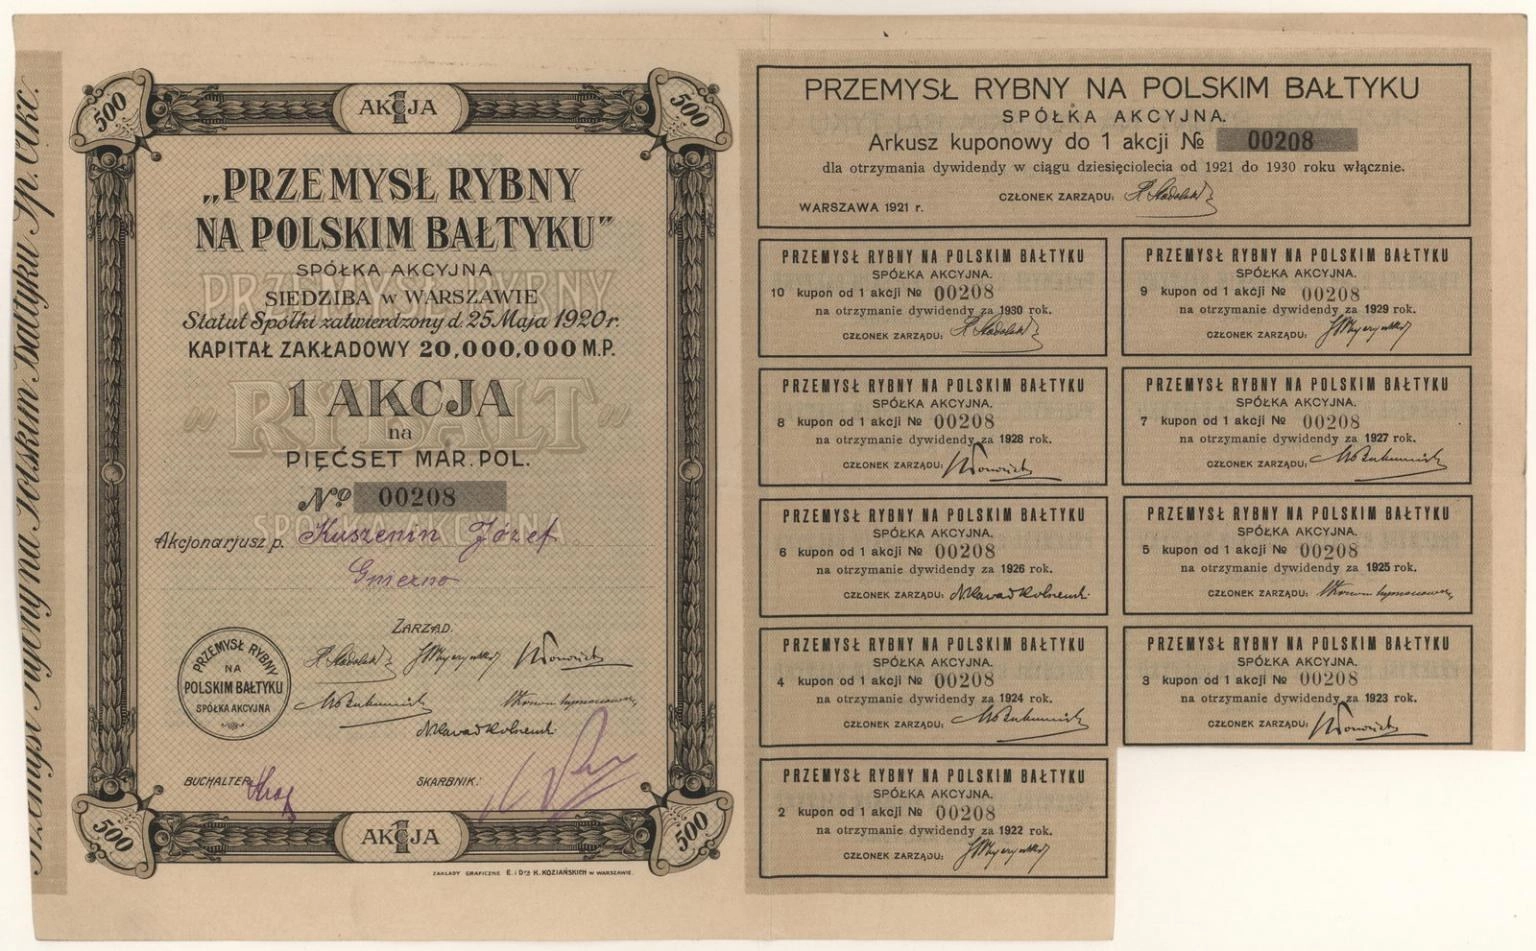 Przemysł Rybny na Polskim Bałtyku Sp. Akc.
500
AKCJA
1
500
„PRZEMYSŁ RYBNY
NA POLSKIM BAŁTYKU”
SPÓŁKA AKCYJNA
SIEDZIBA w WARSZAWIE
Statut Spółki zatwierdzony d. 25 Maja 1920 r.
KAPITAŁ ZAKŁADOWY 20,000,000 M.P.
PRZEMYSŁ RYBNY
„RYBALT”
SPÓŁKA AKCYJNA
1 AKCJA
na
PIĘĆSET MAR. POL.
No 00208
Akcjonarjusz p. Kuszenin Józef
Gniezno
ZARZĄD
PRZEMYSŁ RYBNY
NA
POLSKIM BAŁTYKU
SPÓŁKA AKCYJNA
BUCHALTER
SKARBNIK:
500
AKCJA
1
500
ZAKŁADY GRAFICZNE E. i Dra K. KOZIAŃSKICH w WARSZAWIE.
PRZEMYSŁ RYBNY NA POLSKIM BAŁTYKU
SPÓŁKA AKCYJNA.
Arkusz kuponowy do 1 akcji № 00208
dla otrzymania dywidendy w ciągu dziesięciolecia od 1921 do 1930 roku włącznie.
WARSZAWA 1921 r.
CZŁONEK ZARZĄDU:
PRZEMYSŁ RYBNY NA POLSKIM BAŁTYKU
SPÓŁKA AKCYJNA.
10 kupon od 1 akcji № 00208
na otrzymanie dywidendy za 1930 rok.
CZŁONEK ZARZĄDU:
PRZEMYSŁ RYBNY NA POLSKIM BAŁTYKU
SPÓŁKA AKCYJNA.
9 kupon od 1 akcji № 00208
na otrzymanie dywidendy za 1929 rok.
CZŁONEK ZARZĄDU:
PRZEMYSŁ RYBNY NA POLSKIM BAŁTYKU
SPÓŁKA AKCYJNA.
8 kupon od 1 akcji № 00208
na otrzymanie dywidendy za 1928 rok.
CZŁONEK ZARZĄDU:
PRZEMYSŁ RYBNY NA POLSKIM BAŁTYKU
SPÓŁKA AKCYJNA.
7 kupon od 1 akcji № 00208
na otrzymanie dywidendy za 1927 rok.
CZŁONEK ZARZĄDU:
PRZEMYSŁ RYBNY NA POLSKIM BAŁTYKU
SPÓŁKA AKCYJNA.
6 kupon od 1 akcji № 00208
na otrzymanie dywidendy za 1926 rok.
CZŁONEK ZARZĄDU:
PRZEMYSŁ RYBNY NA POLSKIM BAŁTYKU
SPÓŁKA AKCYJNA.
5 kupon od 1 akcji № 00208
na otrzymanie dywidendy za 1925 rok.
CZŁONEK ZARZĄDU:
PRZEMYSŁ RYBNY NA POLSKIM BAŁTYKU
SPÓŁKA AKCYJNA.
4 kupon od 1 akcji № 00208
na otrzymanie dywidendy za 1924 rok.
CZŁONEK ZARZĄDU:
PRZEMYSŁ RYBNY NA POLSKIM BAŁTYKU
SPÓŁKA AKCYJNA.
3 kupon od 1 akcji № 00208
na otrzymanie dywidendy za 1923 rok.
CZŁONEK ZARZĄDU:
PRZEMYSŁ RYBNY NA POLSKIM BAŁTYKU
SPÓŁKA AKCYJNA.
2 kupon od 1 akcji № 00208
na otrzymanie dywidendy za 1922 rok.
CZŁONEK ZARZĄDU: